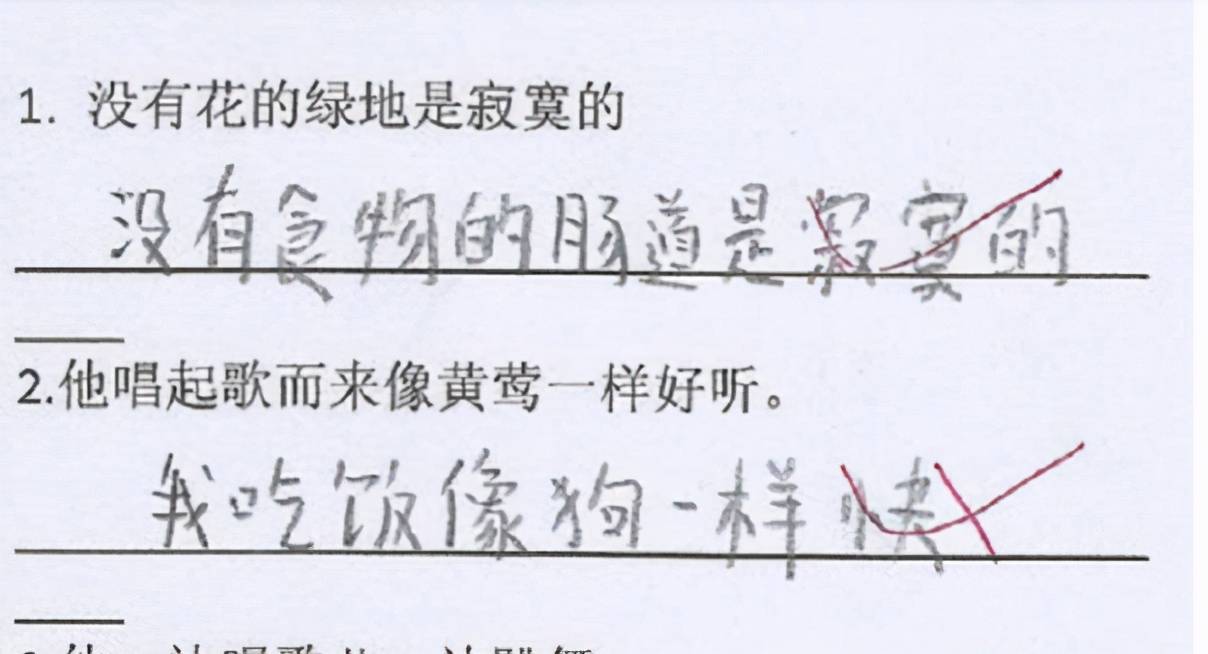 1. 没有花的绿地是寂寞的
没有食物的肠道是寂寞的
2.他唱起歌而来像黄莺一样好听。
我吃饭像狗一样快